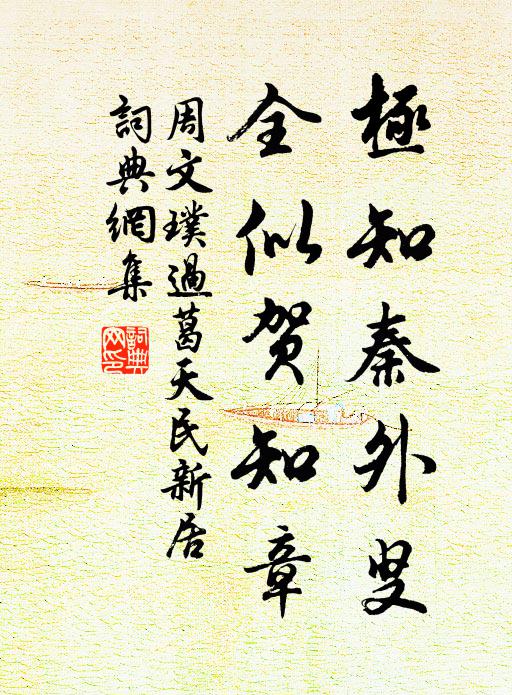 極知秦外叟
全似賀知章
周文璞過葛天民新居
詞典網集
詞典
网印